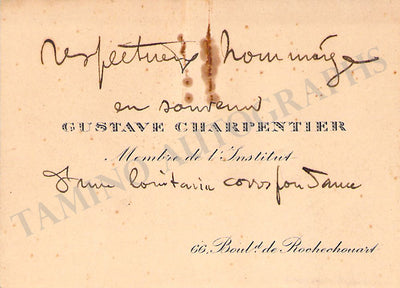 respectueux hommage
en souvenir
GUSTAVE CHARPENTIER
Membre de l'Institut
d'une lointaine correspondance
66, Boul.d de Rochechouart
TAMINO AUTOGRAPHS